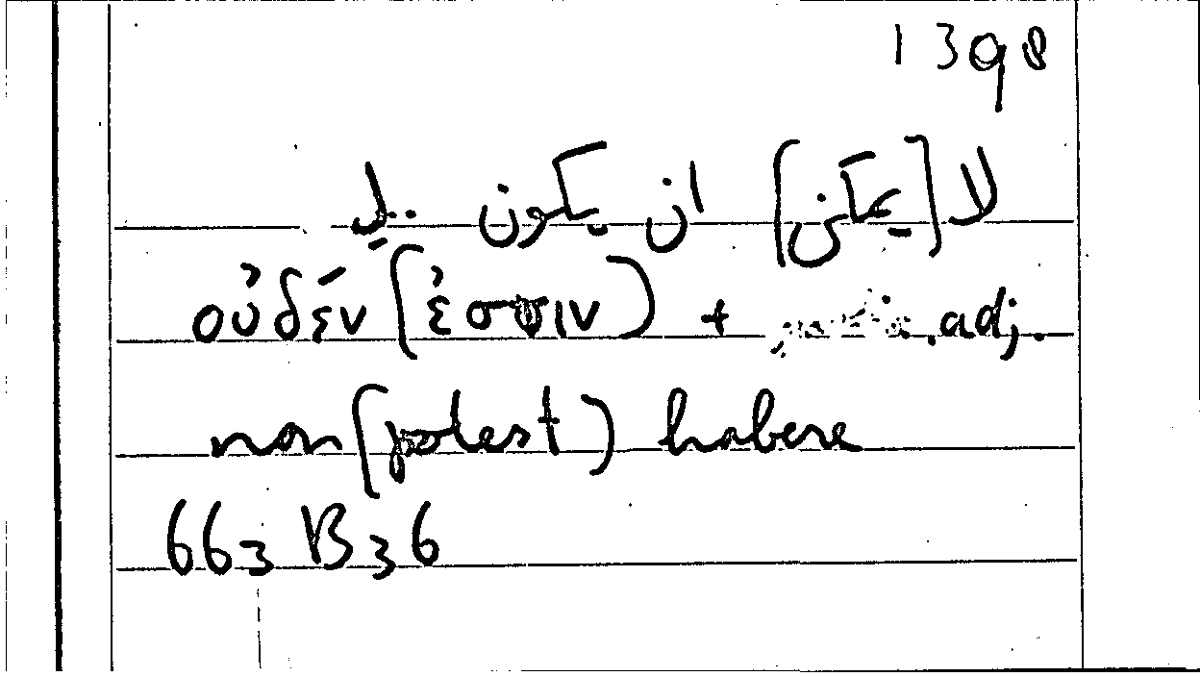 1398
لا [يمكن] ان يكون
οὐδέν (ἐστιν) + adj.
non (potest) habere
663 B 36